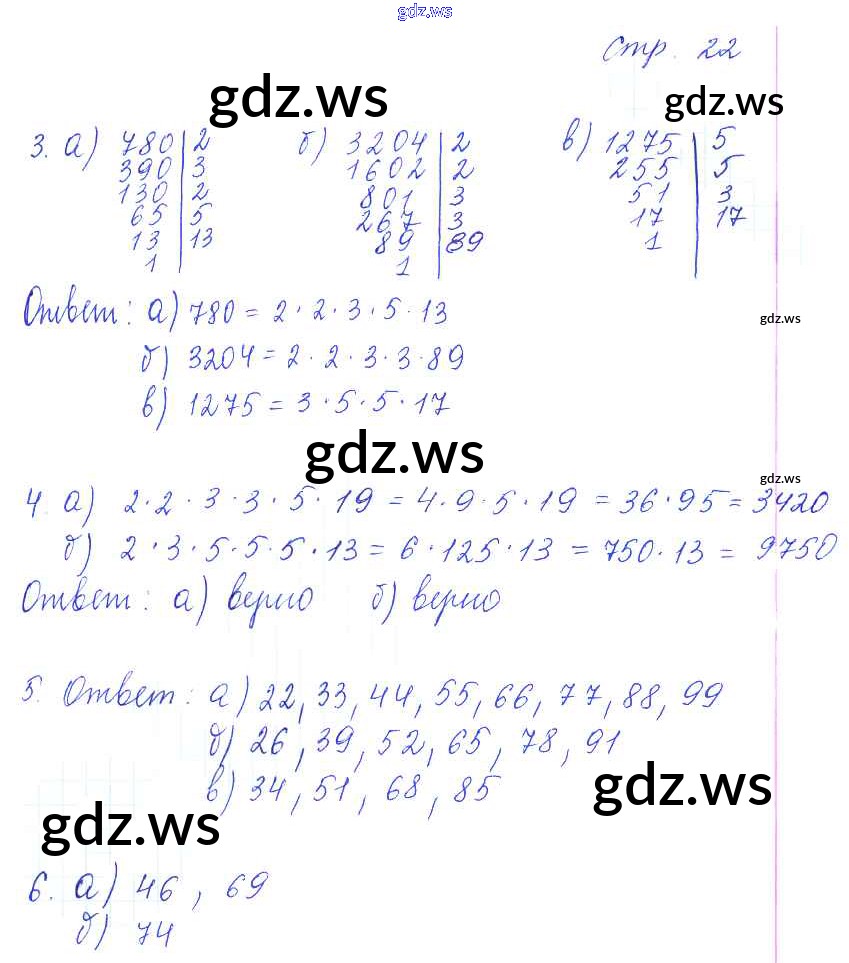 gdz.ws
Стр. 22
gdz.ws
gdz.ws
3. а) 780 | 2 б) 3204 | 2 в) 1275 | 5
390 | 3 1602 | 2 255 | 5
130 | 2 801 | 3 51 | 3
65 | 5 267 | 3 17 | 17
13 | 13 89 | 89 1
1 1
Ответ: а) 780 = 2 · 2 · 3 · 5 · 13
gdz.ws
б) 3204 = 2 · 2 · 3 · 3 · 89
в) 1275 = 3 · 5 · 5 · 17
gdz.ws
gdz.ws
4. а) 2 · 2 · 3 · 3 · 5 · 19 = 4 · 9 · 5 · 19 = 36 · 95 = 3420
б) 2 · 3 · 5 · 5 · 5 · 13 = 6 · 125 · 13 = 750 · 13 = 9750
Ответ: а) верно б) верно
5. Ответ: а) 22, 33, 44, 55, 66, 77, 88, 99
б) 26, 39, 52, 65, 78, 91
в) 34, 51, 68, 85
gdz.ws
gdz.ws
6. а) 46, 69
б) 74